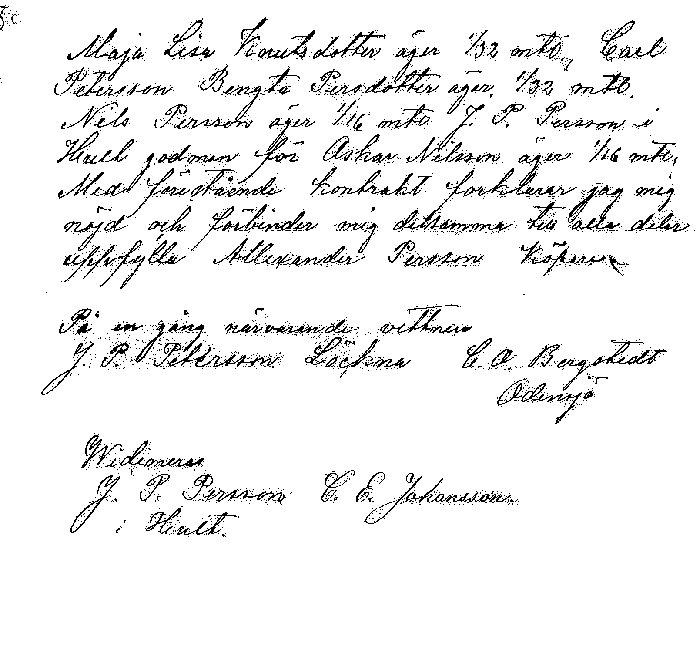 Maja Lisa Knutsdotter äger 1/32 mtl, Carl
Petersson Bengta Persdotter äger, 1/32 mtl.
Nels Persson äger 1/16 mtl J. P. Persson i
Hult godman för Oskar Nilsson äger 1/16 mtl,
Med förestående kontrakt forklarar jag mig
nöjd och förbinder mig detsamma till alla delar
uppfylla Allexander Persson Köparen
På en gång närvarande vittnen
J. P. Petersson Löckna C. A. Bergstedt
Odensjö
Widimeras
J. P. Persson C. E. Johansson
i Hult.